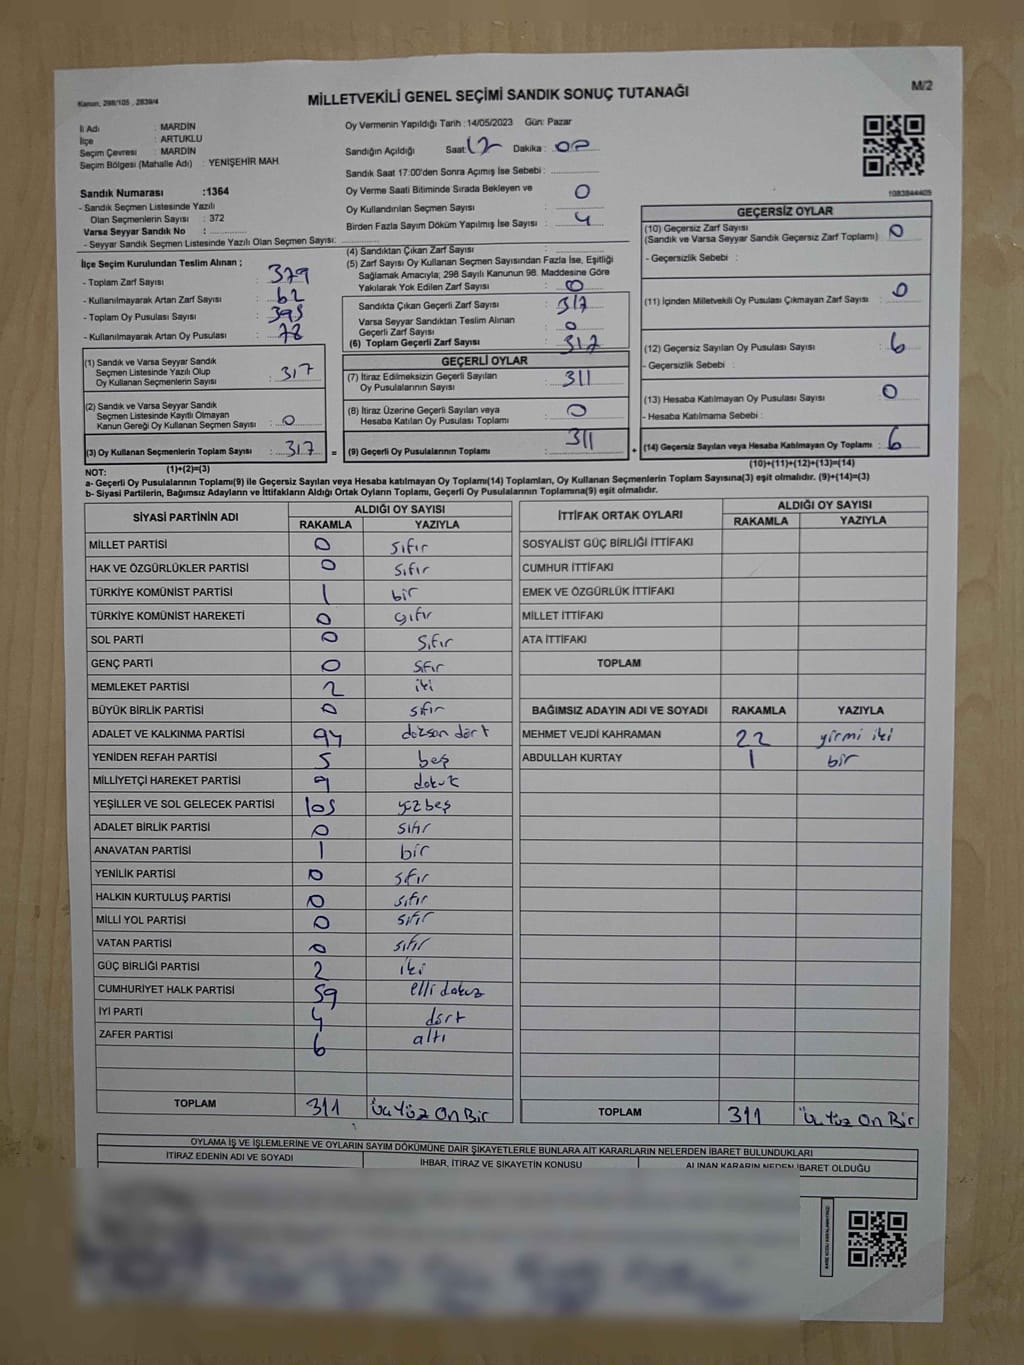 Kanun, 298/105 , 2839/4
MİLLETVEKİLİ GENEL SEÇİMİ SANDIK SONUÇ TUTANAĞI
M/2
İl Adı : MARDİN
İlçe : ARTUKLU
Seçim Çevresi : MARDİN
Seçim Bölgesi (Mahalle Adı) : YENİŞEHİR MAH
Oy Vermenin Yapıldığı Tarih : 14/05/2023 Gün: Pazar
Sandığın Açıldığı Saat: 17 Dakika : 00
Sandık Saat 17:00'den Sonra Açımış İse Sebebi :
Oy Verme Saati Bitiminde Sırada Bekleyen ve
Oy Kullandırılan Seçmen Sayısı : 0
Birden Fazla Sayım Döküm Yapılmış İse Sayısı : 4
1083844405
Sandık Numarası :1364
- Sandık Seçmen Listesinde Yazılı
Olan Seçmenlerin Sayısı : 372
Varsa Seyyar Sandık No :
- Seyyar Sandık Seçmen Listesinde Yazılı Olan Seçmen Sayısı:
İlçe Seçim Kurulundan Teslim Alınan ;
- Toplam Zarf Sayısı : 379
- Kullanılmayarak Artan Zarf Sayısı : 62
- Toplam Oy Pusulası Sayısı : 395
- Kullanılmayarak Artan Oy Pusulası : 78
(1) Sandık ve Varsa Seyyar Sandık
Seçmen Listesinde Yazılı Olup
Oy Kullanan Seçmenlerin Sayısı : 317
(2) Sandık ve Varsa Seyyar Sandık
Seçmen Listesinde Kayıtlı Olmayan
Kanun Gereği Oy Kullanan Seçmen Sayısı : 0
(3) Oy Kullanan Seçmenlerin Toplam Sayısı : 317 =
(4) Sandıktan Çıkan Zarf Sayısı :
(5) Zarf Sayısı Oy Kullanan Seçmen Sayısından Fazla İse, Eşitliği
Sağlamak Amacıyla; 298 Sayılı Kanunun 98. Maddesine Göre
Yakılarak Yok Edilen Zarf Sayısı : 0
Sandıkta Çıkan Geçerli Zarf Sayısı : 317
Varsa Seyyar Sandıktan Teslim Alınan
Geçerli Zarf Sayısı : 0
(6) Toplam Geçerli Zarf Sayısı : 317
GEÇERLİ OYLAR
(7) İtiraz Edilmeksizin Geçerli Sayılan
Oy Pusulalarının Sayısı : 311
(8) İtiraz Üzerine Geçerli Sayılan veya
Hesaba Katılan Oy Pusulası Toplamı : 0
(9) Geçerli Oy Pusulalarının Toplamı : 311 +
GEÇERSİZ OYLAR
(10) Geçersiz Zarf Sayısı
(Sandık ve Varsa Seyyar Sandık Geçersiz Zarf Toplamı) : 0
- Geçersizlik Sebebi :
(11) İçinden Milletvekili Oy Pusulası Çıkmayan Zarf Sayısı : 0
(12) Geçersiz Sayılan Oy Pusulası Sayısı : 6
- Geçersizlik Sebebi :
(13) Hesaba Katılmayan Oy Pusulası Sayısı : 0
- Hesaba Katılmama Sebebi :
(14) Geçersiz Sayılan veya Hesaba Katılmayan Oy Toplamı : 6
NOT: (1)+(2)=(3)
(10)+(11)+(12)+(13)=(14)
a- Geçerli Oy Pusulalarının Toplamı(9) ile Geçersiz Sayılan veya Hesaba katılmayan Oy Toplamı(14) Toplamları, Oy Kullanan Seçmenlerin Toplam Sayısına(3) eşit olmalıdır. (9)+(14)=(3)
b- Siyasi Partilerin, Bağımsız Adayların ve İttifakların Aldığı Ortak Oyların Toplamı, Geçerli Oy Pusulalarının Toplamına(9) eşit olmalıdır.
SİYASİ PARTİNİN ADI ALDIĞI OY SAYISI
RAKAMLA YAZIYLA
MİLLET PARTİSİ 0 sıfır
HAK VE ÖZGÜRLÜKLER PARTİSİ 0 sıfır
TÜRKİYE KOMÜNİST PARTİSİ 1 bir
TÜRKİYE KOMÜNİST HAREKETİ 0 sıfır
SOL PARTİ 0 sıfır
GENÇ PARTİ 0 sıfır
MEMLEKET PARTİSİ 2 iki
BÜYÜK BİRLİK PARTİSİ 0 sıfır
ADALET VE KALKINMA PARTİSİ 94 doksan dört
YENİDEN REFAH PARTİSİ 5 beş
MİLLİYETÇİ HAREKET PARTİSİ 9 dokuz
YEŞİLLER VE SOL GELECEK PARTİSİ 105 yüzbeş
ADALET BİRLİK PARTİSİ 0 sıfır
ANAVATAN PARTİSİ 1 bir
YENİLİK PARTİSİ 0 sıfır
HALKIN KURTULUŞ PARTİSİ 0 sıfır
MİLLİ YOL PARTİSİ 0 sıfır
VATAN PARTİSİ 0 sıfır
GÜÇ BİRLİĞİ PARTİSİ 2 iki
CUMHURİYET HALK PARTİSİ 59 elli dokuz
İYİ PARTİ 4 dört
ZAFER PARTİSİ 6 altı
TOPLAM 311 Üç Yüz On Bir
İTTİFAK ORTAK OYLARI ALDIĞI OY SAYISI
RAKAMLA YAZIYLA
SOSYALİST GÜÇ BİRLİĞİ İTTİFAKI
CUMHUR İTTİFAKI
EMEK VE ÖZGÜRLÜK İTTİFAKI
MİLLET İTTİFAKI
ATA İTTİFAKI
TOPLAM
BAĞIMSIZ ADAYIN ADI VE SOYADI RAKAMLA YAZIYLA
MEHMET VEJDİ KAHRAMAN 22 yirmi iki
ABDULLAH KURTAY 1 bir
TOPLAM 311 Üç Yüz On Bir
OYLAMA İŞ VE İŞLEMLERİNE VE OYLARIN SAYIM DÖKÜMÜNE DAİR ŞİKAYETLERLE BUNLARA AİT KARARLARIN NELERDEN İBARET BULUNDUKLARI
İTİRAZ EDENİN ADI VE SOYADI İHBAR, İTİRAZ VE ŞİKAYETİN KONUSU ALINAN KARARIN NEDEN İBARET OLDUĞU